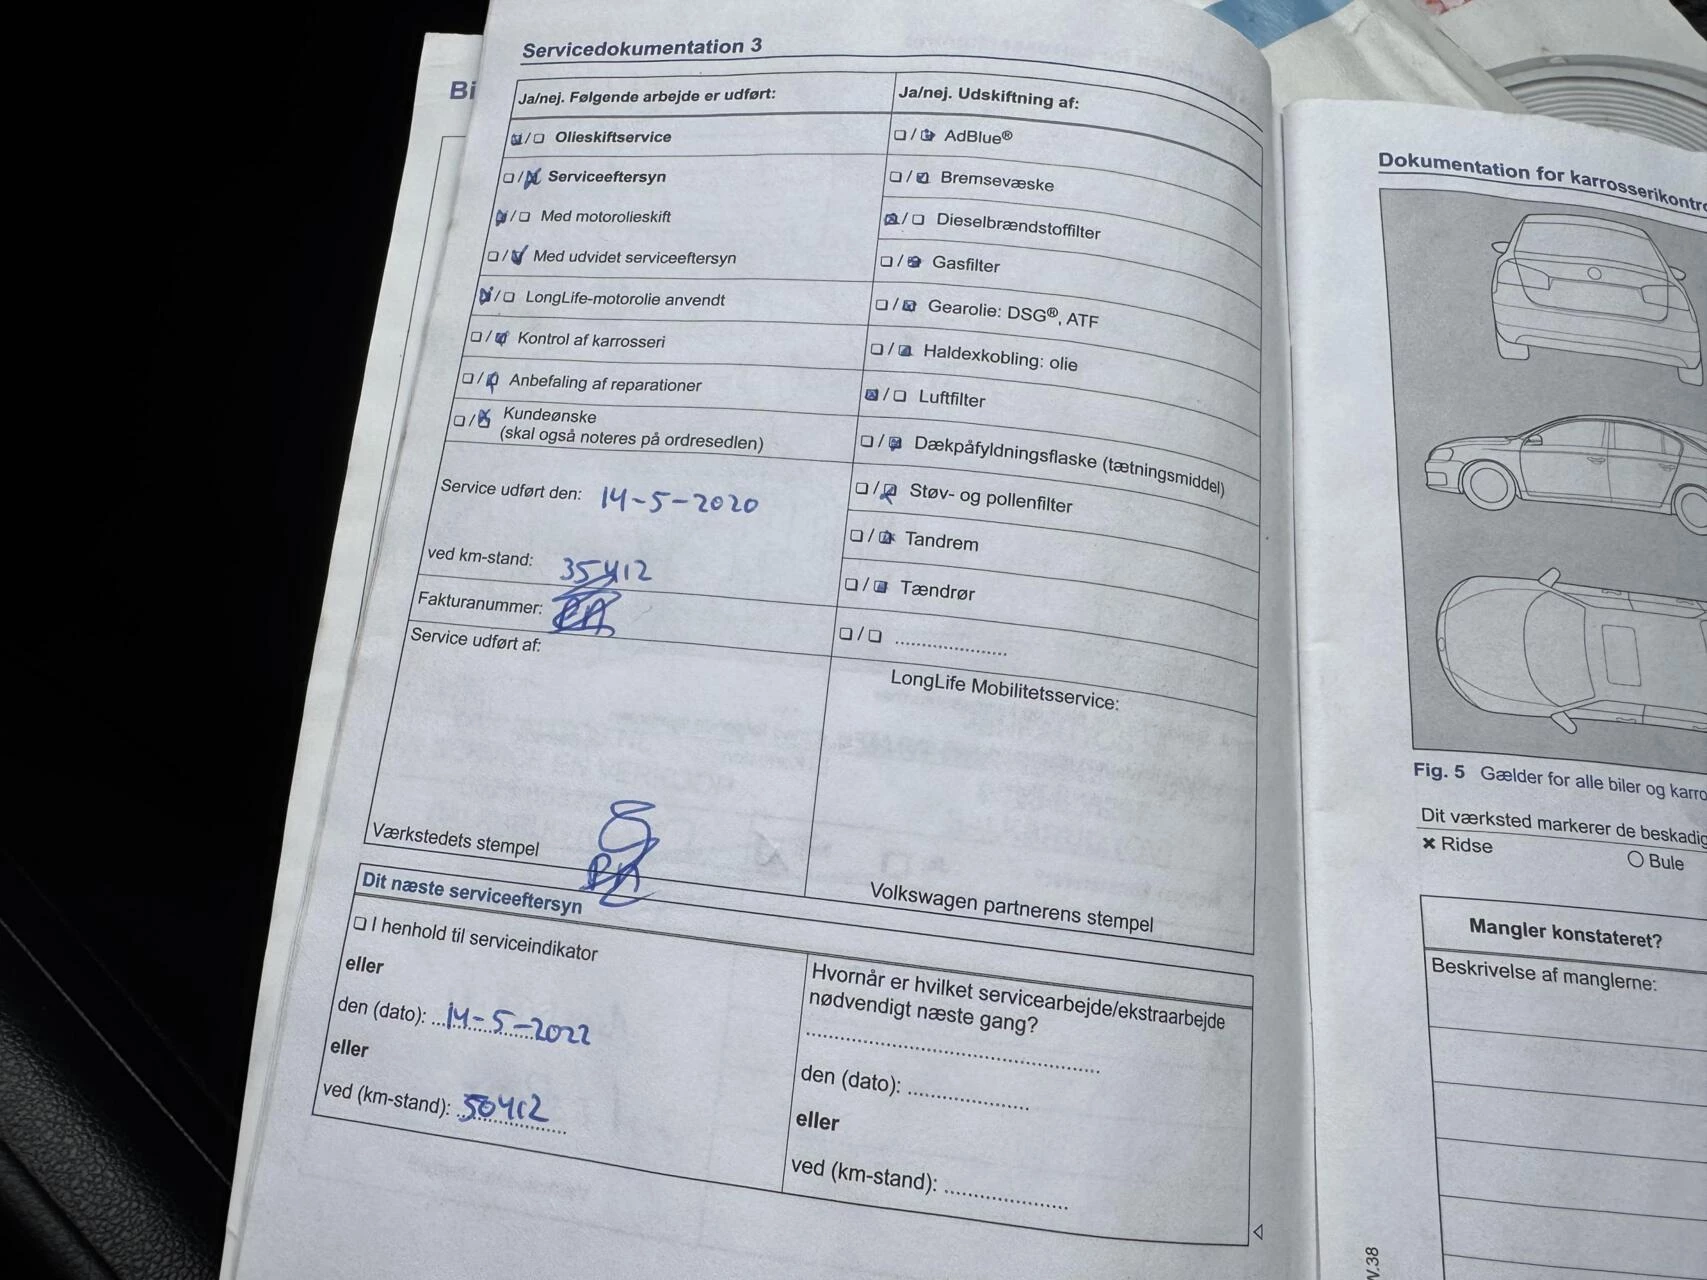 Servicedokumentation 3
Bi
Ja/nej. Følgende arbejde er udført:
Olieskiftservice
Serviceeftersyn
Med motorolieskift
Med udvidet serviceeftersyn
LongLife-motorolie anvendt
Kontrol af karrosseri
Anbefaling af reparationer
Kundeønske
(skal også noteres på ordresedlen)
Service udført den: 14-5-2020
ved km-stand: 35412
Fakturanummer:
Service udført af:
Værkstedets stempel
Ja/nej. Udskiftning af:
AdBlue®
Bremsevæske
Dieselbrændstoffilter
Gasfilter
Gearolie: DSG®, ATF
Haldexkobling: olie
Luftfilter
Dækpåfyldningsflaske (tætningsmiddel)
Støv- og pollenfilter
Tandrem
Tændrør
LongLife Mobilitetsservice:
Volkswagen partnerens stempel
Dit næste serviceeftersyn
I henhold til serviceindikator
eller
den (dato): 14-5-2022
eller
ved (km-stand): 50412
Hvornår er hvilket servicearbejde/ekstraarbejde
nødvendigt næste gang?
den (dato):
eller
ved (km-stand):
Dokumentation for karrosserikontro
Fig. 5 Gælder for alle biler og karro
Dit værksted markerer de beskadig
Ridse
Bule
Mangler konstateret?
Beskrivelse af manglerne: